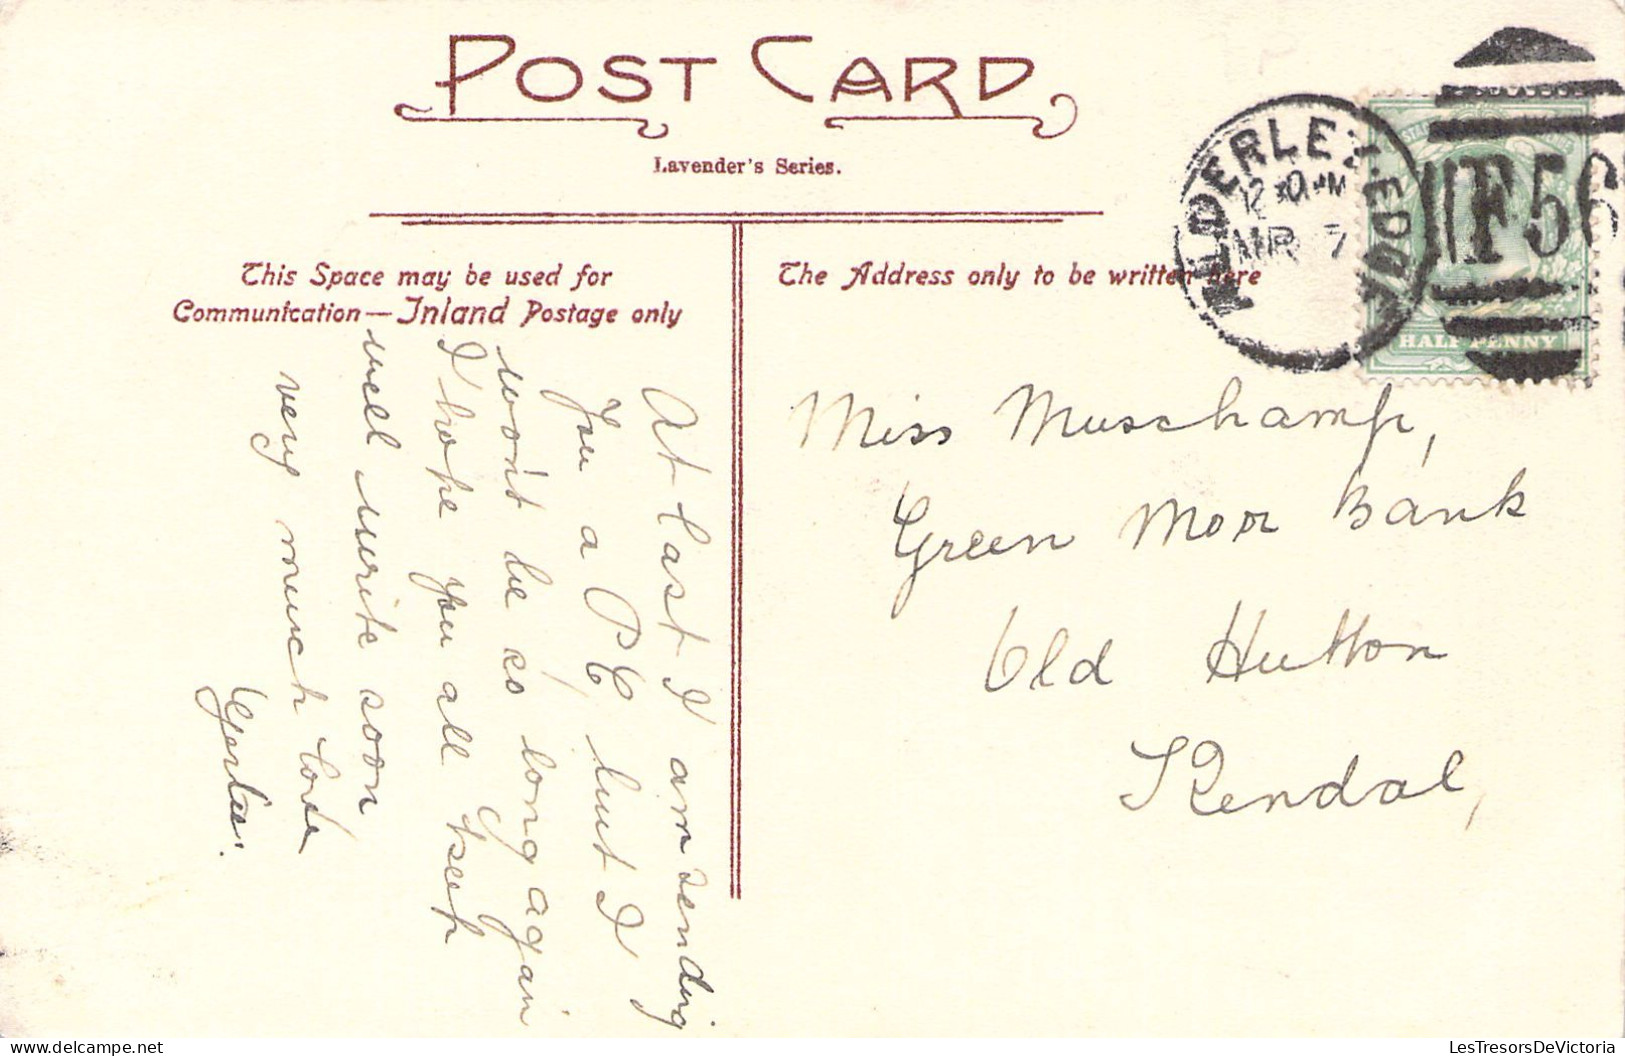 POST CARD
Lavender's Series.
This Space may be used for
Communication—Inland Postage only
The Address only to be written here
ALDERLEY EDGE
12 30 PM
MR 7
F56
HALF PENNY
Miss Muschamp,
Green Moor Bank
Old Hutton
Kendal,
At last I am sending
You a PC but I
won't be so long again
I hope you all keep
well write soon
very much love
LesTresorsDeVictoria.com